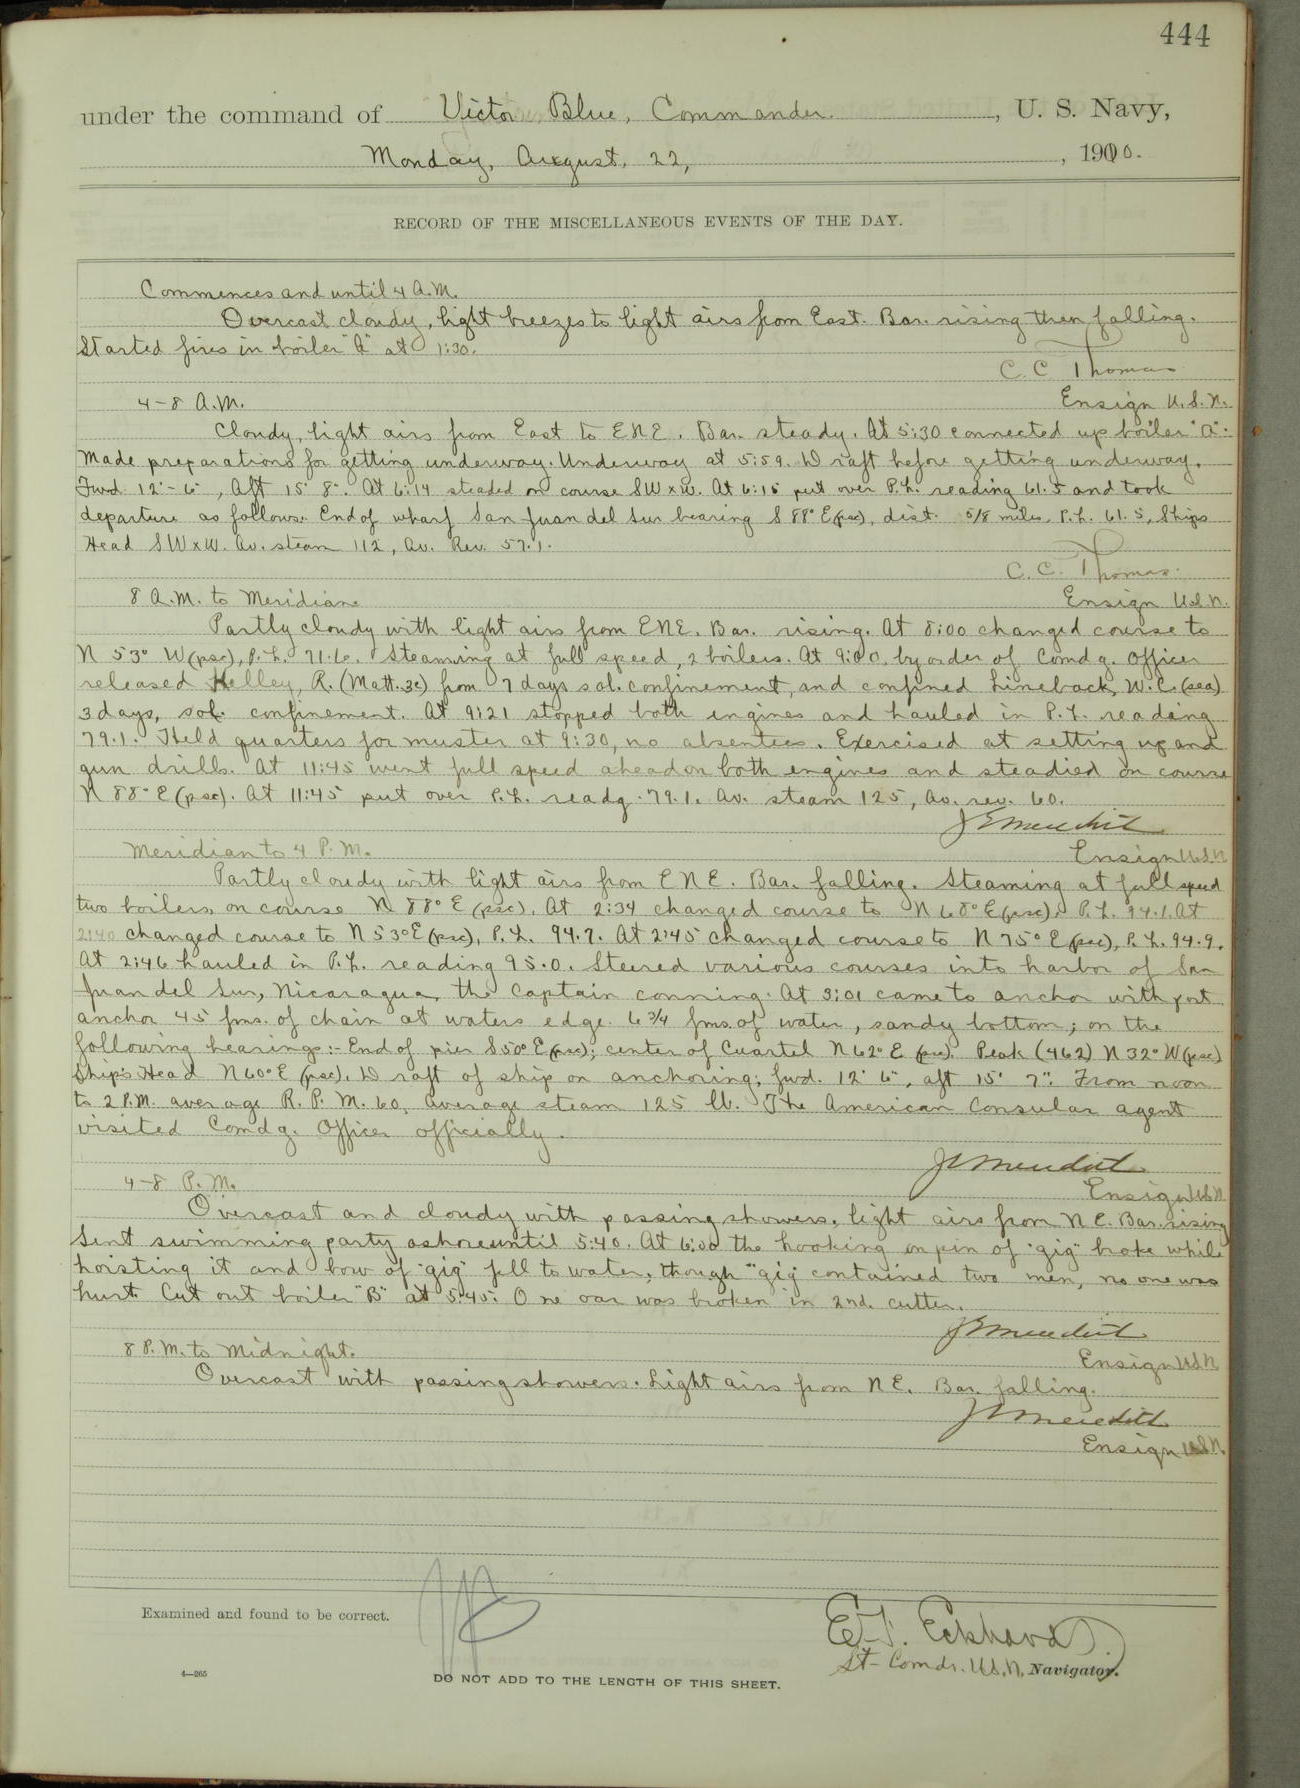 444
under the command of Victor Blue, Commander, U. S. Navy,
Monday, August, 22, 1910.
RECORD OF THE MISCELLANEOUS EVENTS OF THE DAY.
Commences and until 4 A.M.
Overcast cloudy, light breezes to light airs from East. Bar. rising then falling.
Started fires in boiler "A" at 1:30.
C. C. Thomas
4-8 A.M.
Ensign U.S.N.
Cloudy, light airs from East to ENE. Bar. steady. At 5:30 connected up boiler "A".
Made preparations for getting underway. Underway at 5:59. Draft before getting underway,
Fwd 12'-6", Aft 15' 8". At 6:14 steaded on course SWxW. At 6:15 put over P.L. reading 61.5 and took
departure as follows: End of wharf San Juan del Sur bearing S 88° E (psc), dist. 5/8 miles, P.L. 61.5, Ships
Head SWxW. Av. steam 112, Av. Rev. 57.1.
C. C. Thomas.
8 A.M. to Meridian
Ensign U.S.N.
Partly cloudy with light airs from ENE. Bar. rising. At 8:00 changed course to
N 53° W (psc), P.L. 71.6. Steaming at full speed, 2 boilers. At 9:00 by order of Comdg. Officer
released Kelley, R. (Matt.3c) from 7 days sol. confinement, and confined Lineback, W.C. (sea)
3 days, sol. confinement. At 9:21 stopped both engines and hauled in P.L. reading
79.1. Held quarters for muster at 9:30, no absentees. Exercised at setting up and
gun drills. At 11:45 went full speed ahead on both engines and steadied on course
N 88° E (psc). At 11:45 put over P.L. readg. 79.1. Av. steam 125, Av. rev. 60.
Meridian to 4 P.M.
Ensign U.S.N.
Partly cloudy with light airs from ENE. Bar. falling. Steaming at full speed
two boilers, on course N 88° E (psc). At 2:34 changed course to N 68° E (psc), P.L. 94.1. At
2:40 changed course to N 53° E (psc), P.L. 94.7. At 2:45 changed course to N 75° E (psc), P.L. 94.9.
At 2:46 hauled in P.L. reading 95.0. Steered various courses into harbor of San
Juan del Sur, Nicaragua, the Captain conning. At 3:01 came to anchor with port
anchor 45 fms. of chain at waters edge. 6 3/4 fms. of water, sandy bottom; on the
following bearings:- End of pier S 50° E (psc); center of Cuartel N 62° E (psc). Peak (462) N 32° W (psc)
Ship's Head N 60° E (psc). Draft of ship on anchoring; fwd. 12' 6", aft 15' 7". From noon
to 2 P.M. average R.P.M. 60, average steam 125 lb. The American Consular agent
visited Comdg. Officer officially.
J. Meredith
4-8 P.M.
Ensign U.S.N.
Overcast and cloudy with passing showers, light airs from NE. Bar. rising
Sent swimming party ashore until 5:40. At 6:00 the hooking on pin of "gig" broke while
hoisting it and bow of "gig" fell to water, though "gig" contained two men, no one was
hurt. Cut out boiler "B" at 5:45. One oar was broken in 2nd. cutter.
8 P.M. to Midnight.
Ensign U.S.N.
Overcast with passing showers. Light airs from NE. Bar. falling.
Meredith
Ensign U.S.N.
Examined and found to be correct.
E. Eckhardt
Lt-Comdr. U.S.N., Navigator.
4—265
DO NOT ADD TO THE LENGTH OF THIS SHEET.